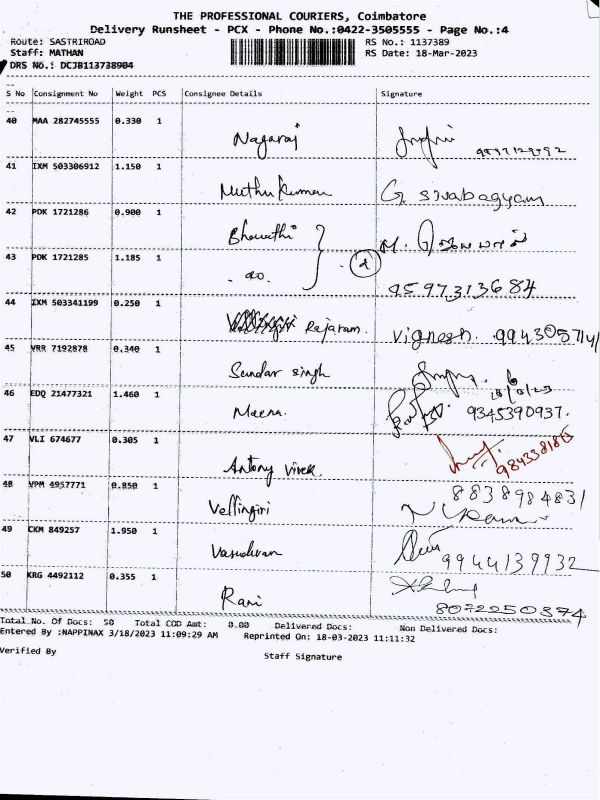 THE PROFESSIONAL COURIERS, Coimbatore
Delivery Runsheet - PCX - Phone No.:0422-3505555 - Page No.:4
Route: SASTRIROAD RS No.: 1137389
Staff: MATHAN RS Date: 18-Mar-2023
DRS No.: DCJB113738904
S No Consignment No Weight PCS Consignee Details Signature
40 MAA 282745555 0.330 1
Nagaraj
41 IXM 503306912 1.150 1
Muthu Kumar G. sivabagyam
42 PDK 1721286 0.900 1
Bharathi
43 PDK 1721285 1.185 1
- do. 2
9597313684
44 IXM 503341199 0.250 1
Rajaram. Vignesh. 9943057141
45 VRR 7192878 0.340 1
Sundar singh
46 EDQ 21477321 1.460 1
Meena. 9345390937.
47 VLI 674677 0.305 1
Antony Vivek
48 VPM 4957771 0.850 1 8838984831
Vellingiri
49 CKM 849257 1.950 1
Vasudevan 9944139932
50 KRG 4492112 0.355 1
Rani 8072250374
Total No. Of Docs: 50 Total COD Amt: 0.00 Delivered Docs: Non Delivered Docs:
Entered By :NAPPINAX 3/18/2023 11:09:29 AM Reprinted On: 18-03-2023 11:11:32
Verified By Staff Signature